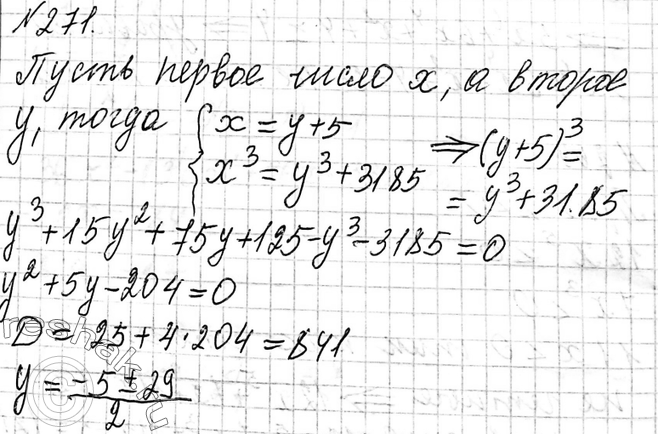 №271.
Пусть первое число x, а второе
y, тогда { x = y+5
x³ = y³ + 3185 ⇒ (y+5)³ =
= y³ + 31.85
y³ + 15y² + 75y + 125 - y³ - 3185 = 0
y² + 5y - 204 = 0
D = 25 + 4·204 = 841
y = (-5 ± 29)/2
reshak.ru